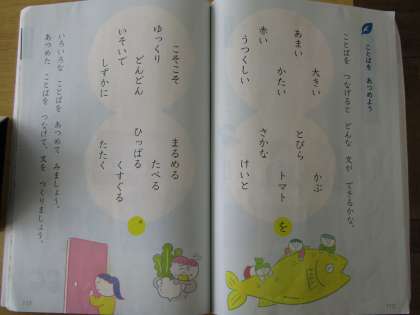 ことばを あつめよう
ことばを つなげると どんな 文が できるかな。
大きい
あまい
かたい
赤い
うつくしい
かぶ
とびら
トマト
さかな
けいと
を
こそこそ
ゆっくり
どんどん
いそいで
しずかに
まるめる
たべる
ひっぱる
くすぐる
たたく
。
いろいろな ことばを あつめて みましょう。
あつめた ことばを つなげて、文を つくりましょう。